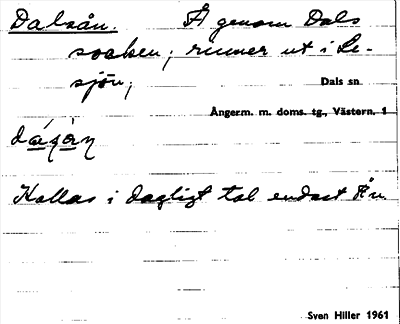 Dalsån. Å genom Dals
socken; rinner ut i Le-
sjön;
Dals sn
Ångerm. m. doms. tg., Västern. 1
Kallas i dagligt tal endast Ån
Sven Hiller 1961